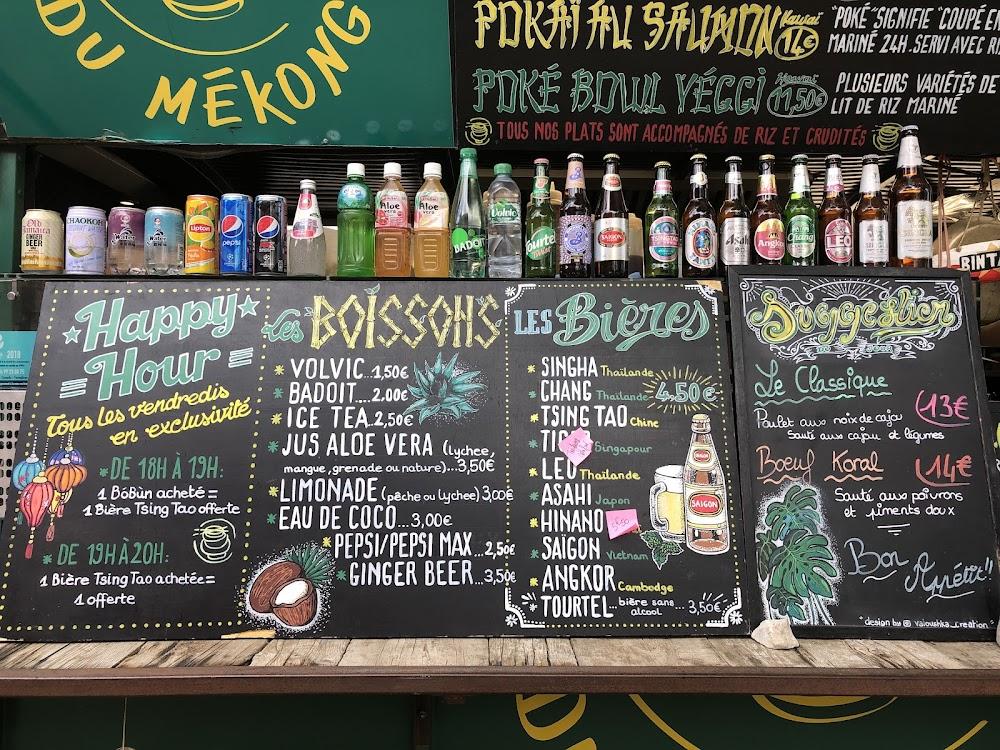 DU MÉKONG
POKAÏ AU SAUMON Kawaï 14€
"POKÉ" SIGNIFIE "COUPÉ EN
MARINÉ 24H. SERVI AVEC RI
POKÉ BOWL VÉGGI 11,50€
PLUSIEURS VARIÉTÉS DE
LIT DE RIZ MARINÉ
TOUS NOS PLATS SONT ACCOMPAGNÉS DE RIZ ET CRUDITÉS
GINGER
BEER
CHAOKOH
Lipton
pepsi
Aloe
vera
Aloe
vera
BADOIT
Volvic
Tourtel
SAIGON
TSINGTAO
Asahi
Angkor
Chang
LEO
BINTA
2018
Happy
Hour
Tous les vendredis
en exclusivité
* DE 18H À 19H:
1 Bóbùn acheté =
1 Bière Tsing Tao offerte
* DE 19H À 20H:
1 Bière Tsing Tao achetée =
1 offerte
Les BOISSONS
* VOLVIC...1,50€
* BADOIT....2,00€
* ICE TEA..2,50€
* JUS ALOE VERA (lychee,
mangue, grenade ou nature)...3,50€
* LIMONADE (pêche ou lychee) 3,00€
* EAU DE COCO...3,00€
* PEPSI/PEPSI MAX...2,50€
* GINGER BEER...3,50€
LES Bières
* SINGHA Thaïlande
* CHANG Thaïlande 4,50€
* TSING TAO Chine
* TIG Singapour
* LEO Thaïlande
* ASAHI Japon
* HINANO
* SAÏGON Vietnam
* ANGKOR Cambodge
* TOURTEL...bière sans alcool...3,50€
SAIGON
Suggestion
du jour
Le Classique
13€
Poulet aux noix de cajou
Sauté aux cajou et légumes
Boeuf Koral
14€
Sauté aux poivrons
et piments doux
Bon
Appétit!!
"design by @ vaioushka_creation"